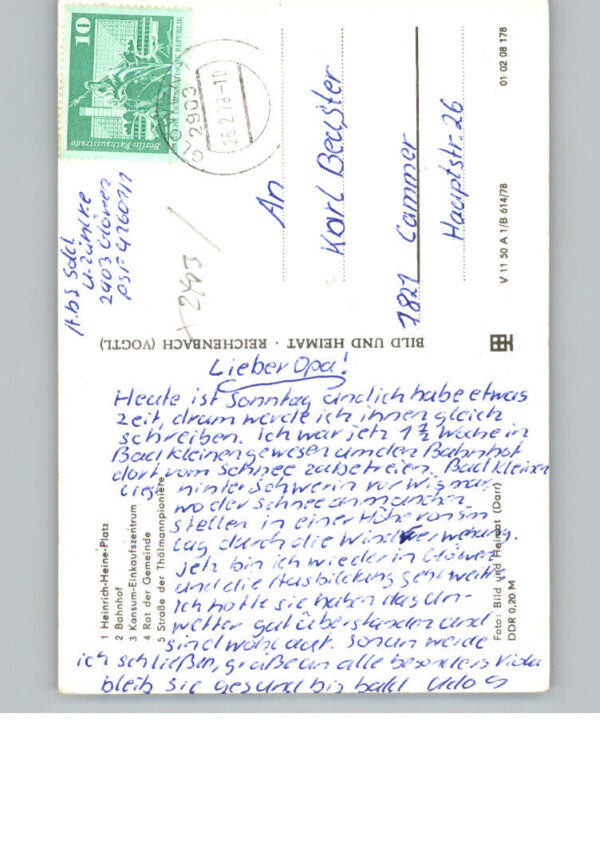 10
Berlin-Rathausstraße
DEUTSCHE DEMOKRATISCHE REPUBLIK
2903
26.2.79-10
Abs Sold
U. Zumke
2903 Glöwen
PSF 4260 7/1
An
Karl Becßter
1821 Cammer
Hauptstr. 26
01 02 08 178
V 11 50 A 1/B 614/78
BILD UND HEIMAT · REICHENBACH (VOGTL)
Lieber Opa!
Heute ist Sonntag und ich habe etwas
Zeit, drum werde ich ihnen gleich
schreiben. Ich war jetz 1 1/2 Woche in
Bad kleinen gewesen um den Bahnhof
dort vom Schnee zu befreien. Bad kleinen
liegt hinter Schwerin vor Wismar,
wo der Schnee an manchen
stellen in einer Höhe von 5m
lag durch die Windverwehung.
Jetz bin ich wieder in Glöwen
und die Ausbildung geht weiter
Ich hoffe sie haben das Un-
wetter gut überstanden und
sind wohl auf. Sonan werde
ich schließen, grüße an alle besonders Viola
bleib sie gesund bis bald Udo
1 Heinrich-Heine-Platz
2 Bahnhof
3 Konsum-Einkaufszentrum
4 Rat der Gemeinde
5 Straße der Thälmannpioniere
Foto: Bild und Heimat (Darr)
DDR 0,20 M